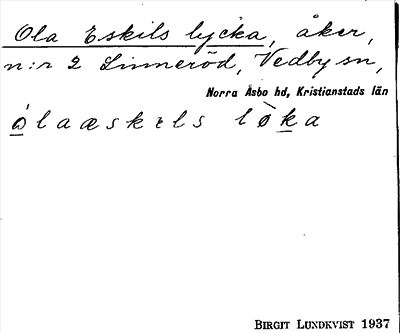 Ola Eskils lycka, åker,
n:r 2 Linneröd, Vedby sn,
Norra Åsbo hd, Kristianstads län
ólaæskɪls lø̀ka
BIRGIT LUNDKVIST 1937